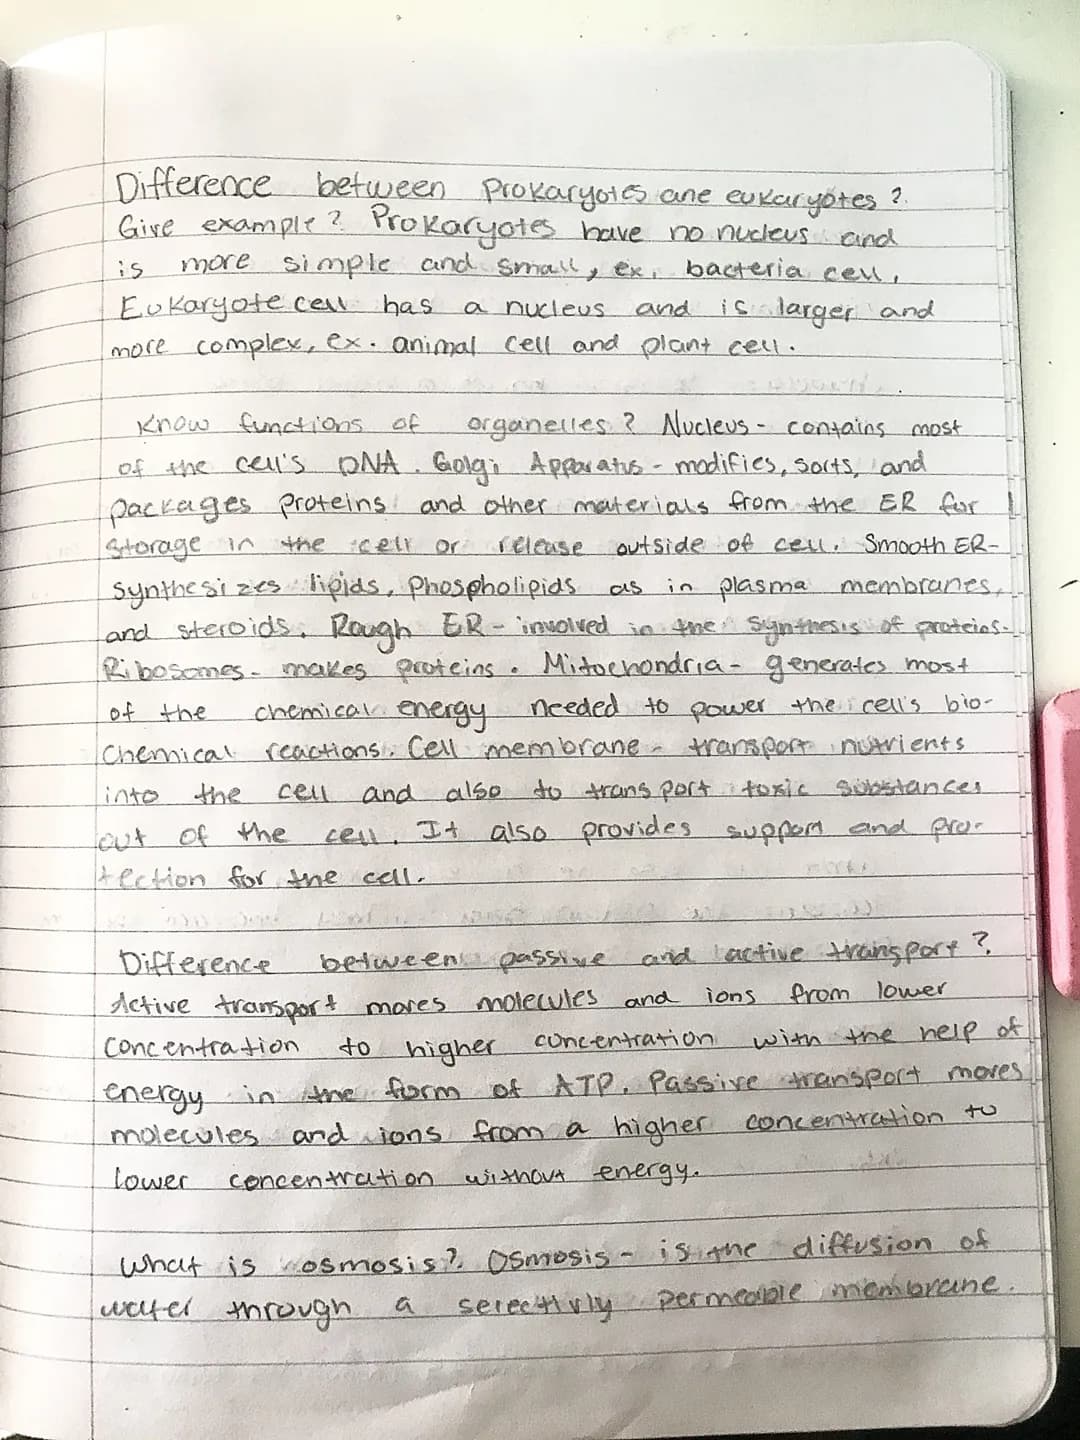 Difference between Prokaryotes ane eukaryotes?
Give example? Prokaryotes have no nucleus and
is more simple and small, ex. bacteria cell,
Eukaryote cell has a nucleus and is larger and
more complex, ex. animal cell and plant cell.
Know functions of organelles? Nucleus - contains most
of the cell's DNA. Golgi Apparatus - modifies, sorts, and
packages proteins and other materials from the ER for
storage in the cell or release outside of cell. Smooth ER-
synthesizes lipids, Phospholipids as in plasma membranes,
and steroids. Rough ER - involved in the synthesis of proteins.
Ribosomes - makes proteins. Mitochondria - generates most
of the chemical energy needed to power the cell's bio-
chemical reactions. Cell membrane - transport nutrients
into the cell and also to transport toxic substances
out of the cell. It also provides support and pro-
tection for the cell.
Difference between passive and active transport?
Active transport moves molecules and ions from lower
concentration to higher concentration with the help of
energy in the form of ATP. Passive transport moves
molecules and ions from a higher concentration to
lower concentration without energy.
What is osmosis? Osmosis - is the diffusion of
water through a selectivly permeable membrane.